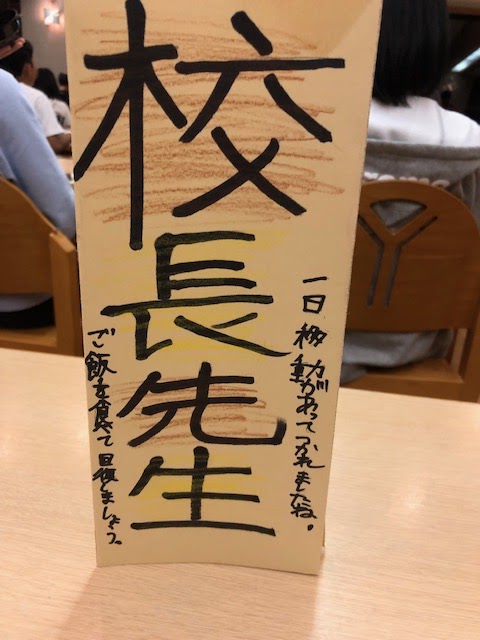 校長先生
一日移動があってつかれましたね。
ご飯を食べて回復しましょう。